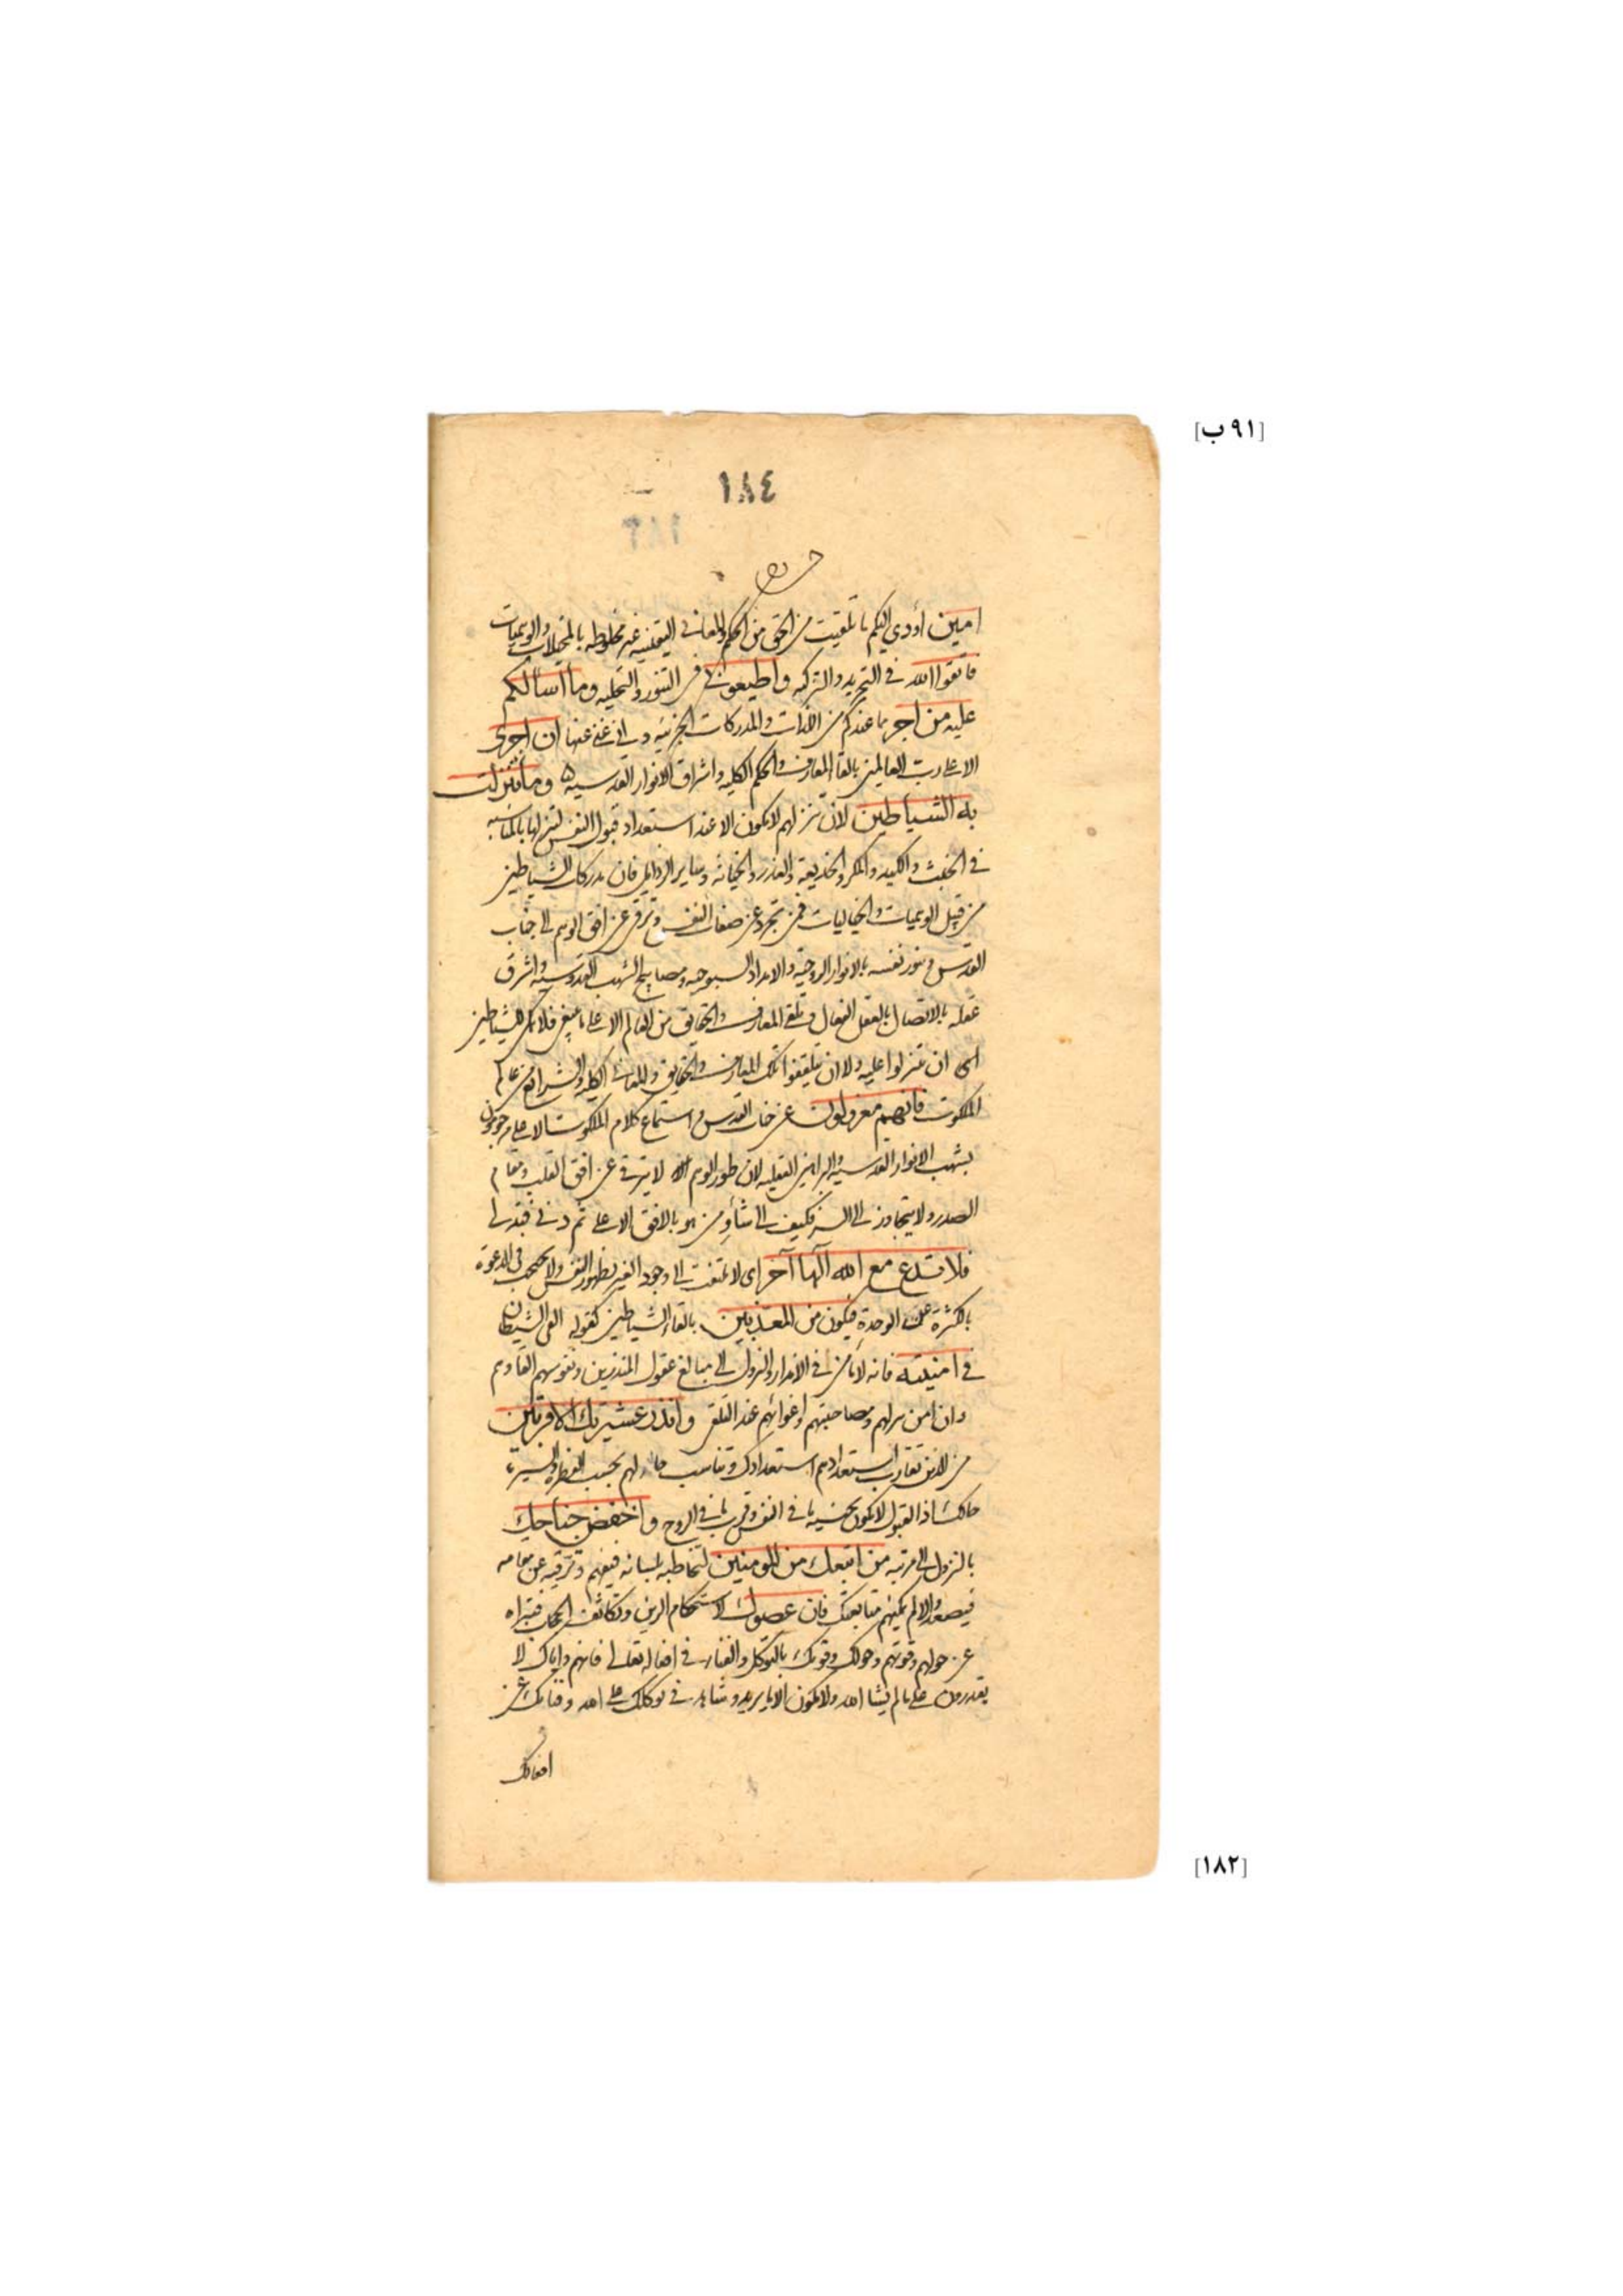 [٩١ ب]
١٨٤
امين أودي اليكم ما تلقيت من الحق من الحكم والمعاني اليقينيه غير مخلوطه بالمتخيلات والوهميات
فاتقوا الله في التجريد والتزكيه واطيعون في التنور والتحليه وما اسألكم
عليه من اجر مما عندكم من اللذات والمدركات الجزئيه فاني غني عنها ان اجرى
الا على رب العالمين بالقاء المعارف والحكم الكليه واشراق الانوار القدسيه وما تنزلت
به الشياطين لان تنزلهم لا يكون الا عند استعداد قبول النفس لتنزلها بالمناسبه
في الخبث والكيد والمكر والخديعة والغدر والخيانه وساير الرذايل فان مدركات الشياطين
من قبيل الوهميات والخياليات فمن تجرد عن صفات النفس وترقى عن افق الوهم الى جناب
القدس وتنور نفسه بالانوار الروحيه والامداد السبوحيه ومصابيح الشهب القدوسيه واشرق
عقله بالاتصال بالعقل الفعال وتلقى المعارف والحقايق من العالم الاعلى ما ينبغي فلا يمكن للشياطين
اى ان تنزلوا عليه ولا ان يتلقفوا تلك المعارف والحقايق والمعاني الكليه والشرايع من عالم
الملكوت فانهم معزولون عن جناب القدس واستماع كلام الملكوت الاعلى مرجومون
بشهب الانوار القدسيه والبراهين العقليه لان طور الوهم لا يترقى عن افق القلب ومقام
الصدر ولا يتجاوز الى السر فكيف الى شأو من هو بالافق الاعلى ثم دنى فتدلى
فلا تدع مع الله آلها آخر اى لا تلتفت الى وجود الغير بظهور النفس ولا تحتجب في الدعوة
بالكثرة عن الوحدة فيكون من المعذبين بالقاء الشياطين كقوله القى الشيطان
في امنيته فانه لا يأمن في الانذار والنزول الى مبالغ عقول المنذرين ونفوسهم القاءهم
وان امن تنزلهم ومصاحبتهم واغوائهم عند التلقى وانذر عشيرتك الاقربين
من الذين تقارب استعدادهم استعدادك وتناسب حالهم بحسب الفطرة والسيرة
حالك اذ القبول لا يكون بجنسيه ما في النفس وقرب ما في الروح واخفض جناحك
بالنزول الى مرتبه من اتبعك من المومنين لتخاطبه بلسانه فيفهم وترقيه عن مقامه
فيصعد والا لم يمكنهم متابعتك فان عصوك لاستحكام الرين وتكاثف الحجاب فتبراء
عن حولهم وقوتهم وحولك وقوتك بالتوكل والفناء في افعاله تعالى فانهم واياك لا
يقدرون على ما لم يشا الله ولا يكون الا ما يريد وشاهد في توكلك على الله وفنائك عن
افعالك
[١٨٢]